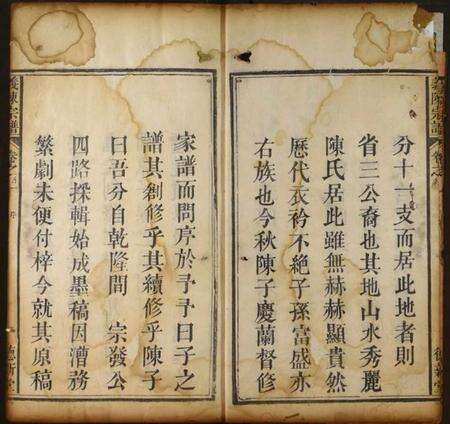 分十一支而居此地者則
省三公裔也其地山水秀麗
陳氏居此雖無赫赫顯貴然
歷代衣衿不絕子孫富盛亦
右族也今秋陳子慶蘭督修
家譜而問序於予予曰子之
譜其創修乎其續修乎陳子
曰吾分自乾隆間　宗發公
四路採輯始成墨稿因漕務
繁劇未便付梓今就其原稿
義陳宗譜